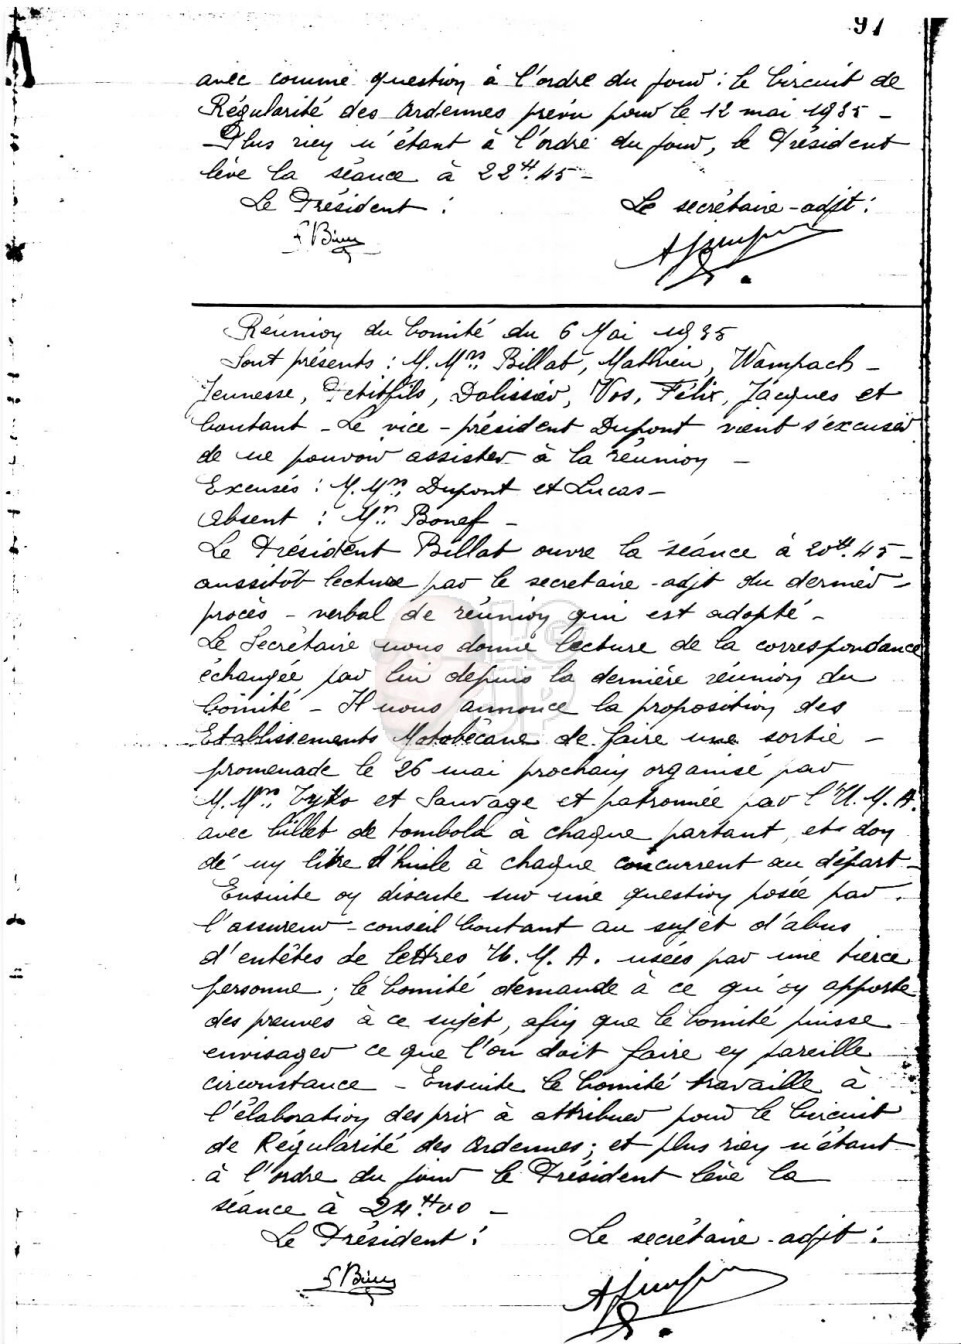 97
avec comme question à l'ordre du jour : le Circuit de
Régularité des Ardennes prévu pour le 12 mai 1935 -
Plus rien n'étant à l'ordre du jour, le Président
lève la séance à 22H.45 -
Le Président : Le secrétaire-adjt :
Réunion du Comité du 6 Mai 1935
Sont présents : M.Mrs Billat, Mathieu, Wampach -
Jeunesse, Petitfils, Dalissier, Vos, Félix, Jacques et
Coutant - Le vice-président Dupont vient s'excuser
de ne pouvoir assister à la réunion -
Excusés : M.Mrs Dupont et Lucas -
Absent : Mr Bonef -
Le Président Billat ouvre la séance à 20H.45 -
aussitôt lecture par le secretaire-adjt du dernier
procès-verbal de réunion qui est adopté -
Le Secrétaire nous donne lecture de la correspondance
échangée par lui depuis la dernière réunion du
Comité - Il nous annonce la proposition des
Etablissements Motobécane de faire une sortie -
promenade le 26 mai prochain organisé par
M.Mrs et Sauvage et patronnée par l'U.M.A.
avec billet de tombola à chaque partant, et don
de un litre d'huile à chaque concurrent au départ -
Ensuite on discute sur une question posée par
l'assureur-conseil Coutant au sujet d'abus
d'entêtes de lettres U.M.A. usées par une tierce
personne ; le Comité demande à ce qu'on apporte
des preuves à ce sujet, afin que le Comité puisse
envisager ce que l'on doit faire en pareille
circonstance - Ensuite le Comité travaille à
l'élaboration des prix à attribuer pour le Circuit
de Régularité des Ardennes ; et plus rien n'étant
à l'ordre du jour le Président lève la
séance à 24H00 -
Le Président : Le secrétaire-adjt :